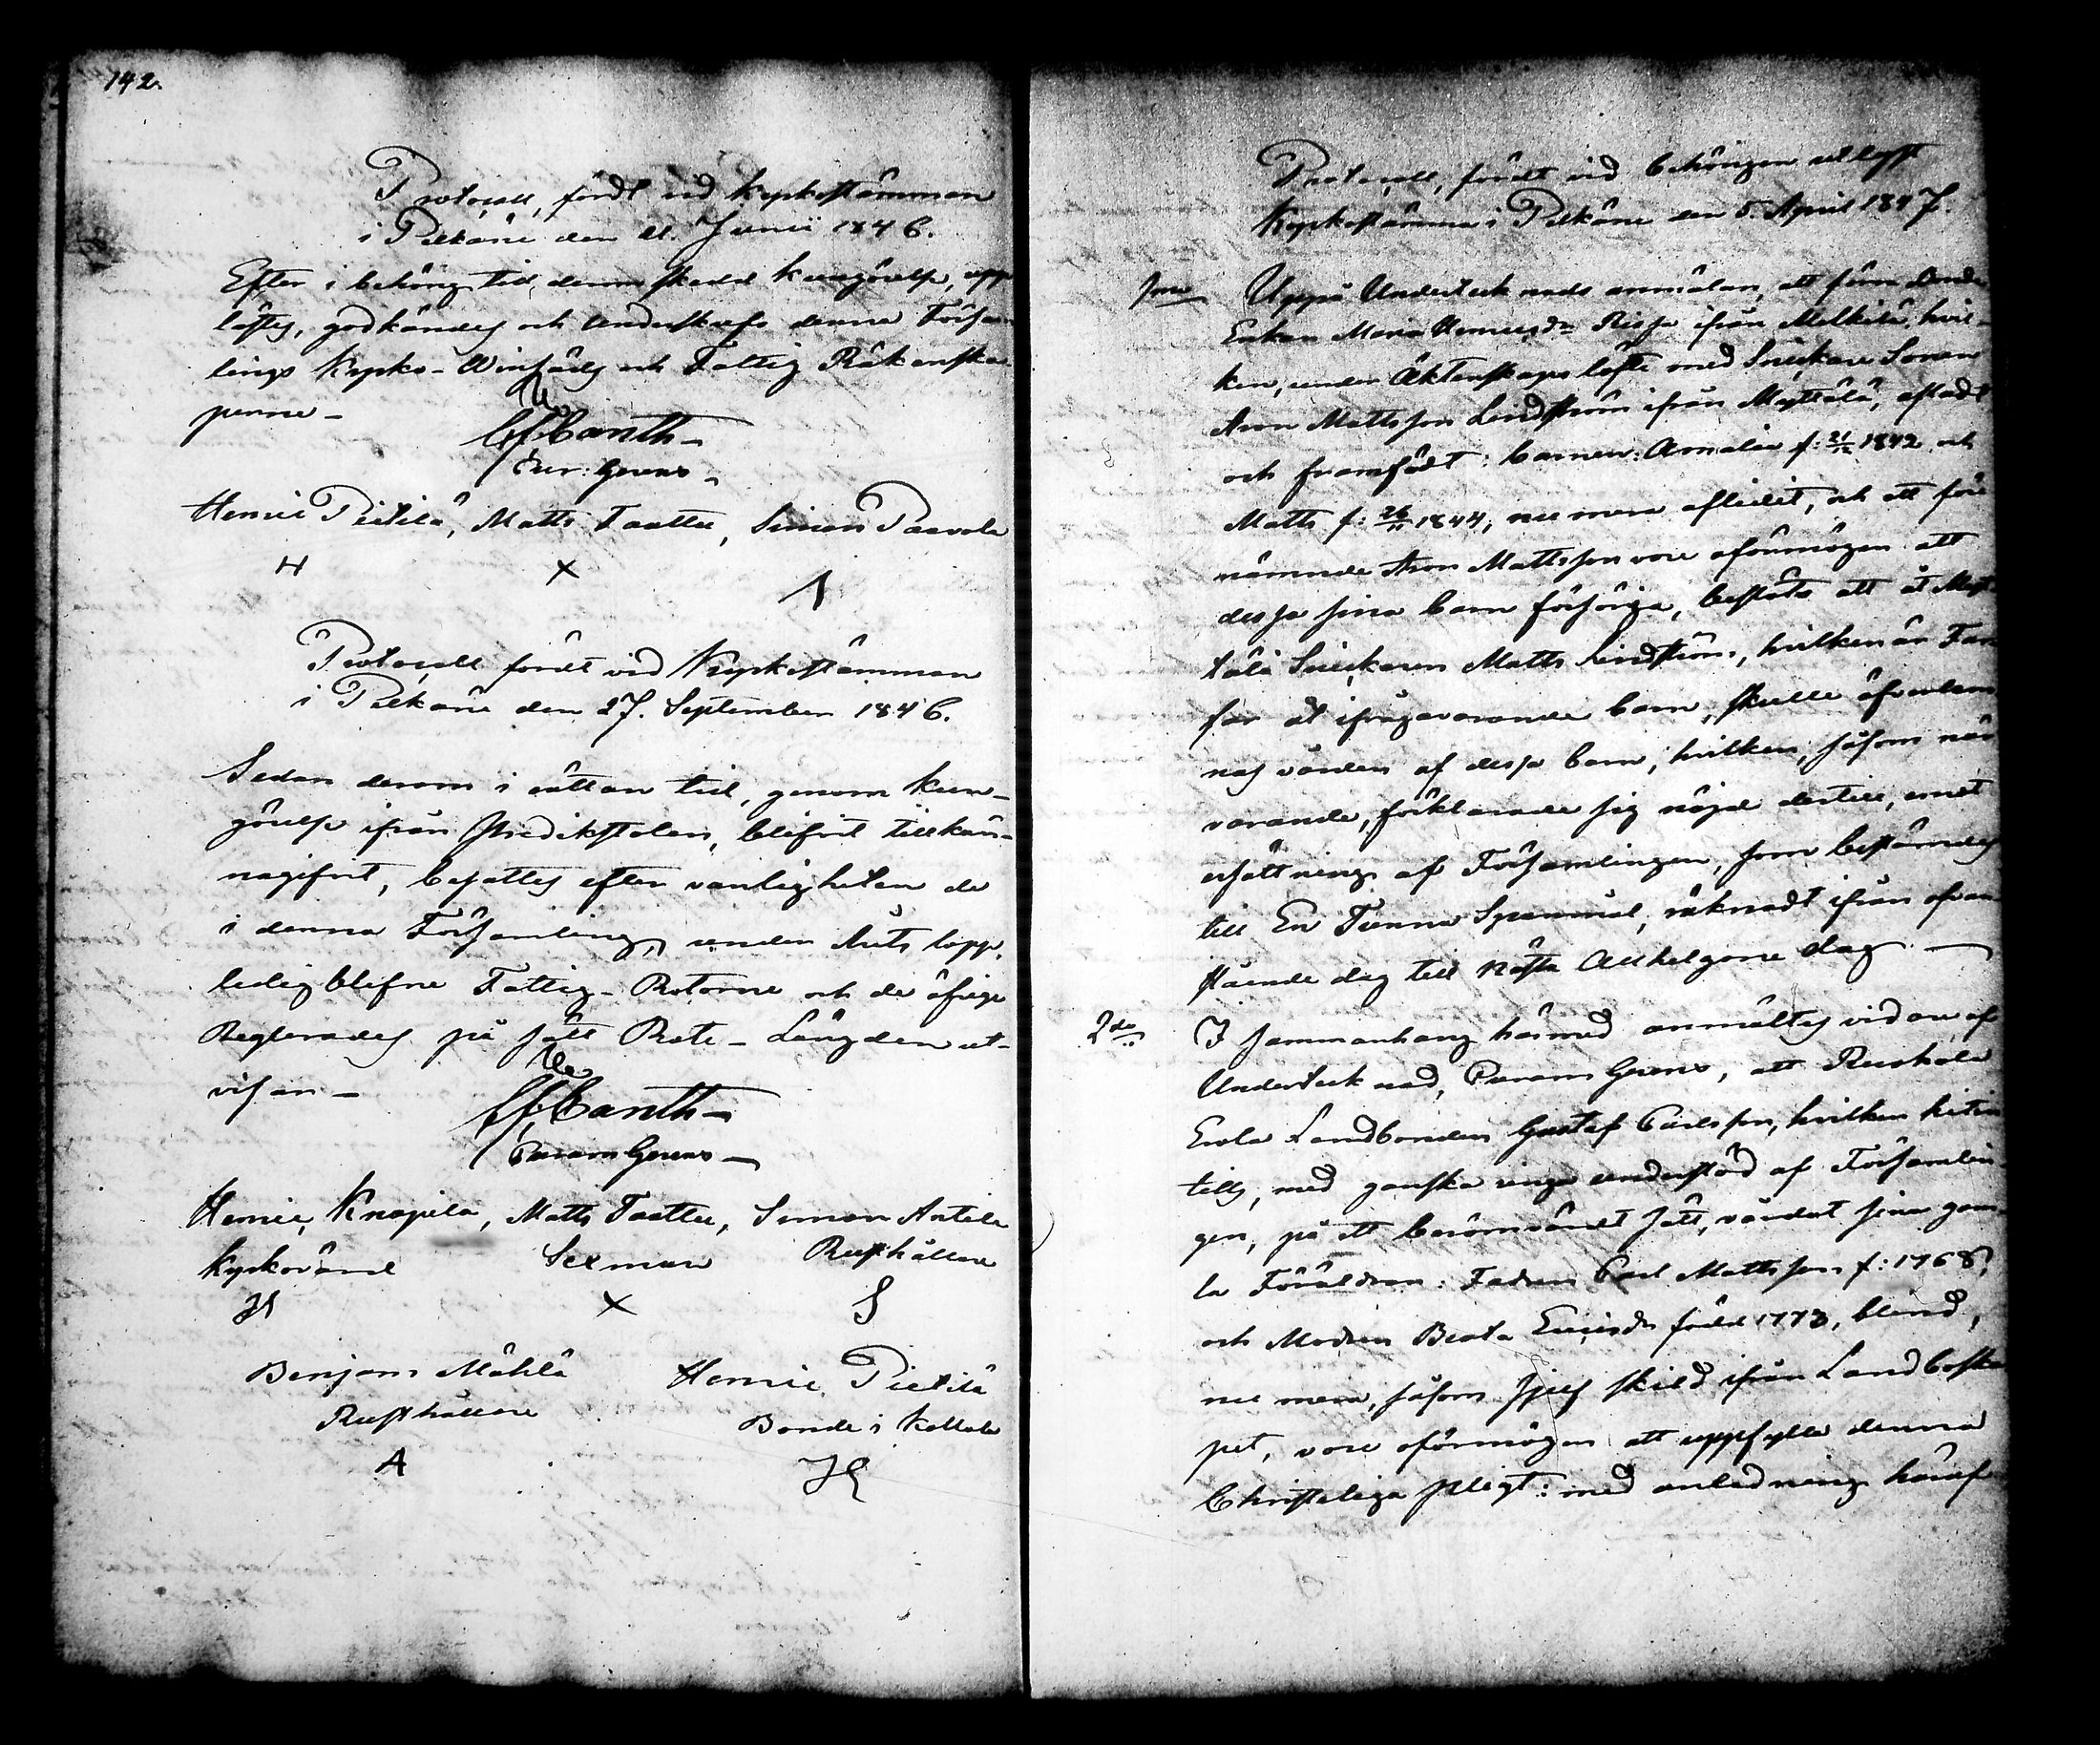 142.
Protocoll, fördt vid Kyrkostämman
i Pelkäne den 21. Junii 1846.
Efter i behörig tid, derom skedd kungörelse, upp
lästes, godkändes och underskrefs denna Försam
lings Kyrko- Winfärds och Fattig Räkenska
perne -
C. J. Canth -
Cur: Gerens -
Henric Pietilä, Matts Taattu, Simon Paavola
H X
Protocoll fördt vid Kyrkostämman
i Pelkäne den 27. September 1846.
Sedan derom i rättan tid, genom kun-
görelse ifrån Predikstolen, blifvit tillkän-
nagifvit, besattes efter vanligheten de
i denna Församling, under Årets lopp,
ledigblifne Fattig-Rotorne och de öfrige
Reglerades på sätt Rote-Längden ut-
visar -
C. J. Canth -
Curam Gerens -
Henric Knapila, Matts Taattu, Simon Antila
Kyrkovärd Sexman Rusthållare
X S
Benjam Mähkä Henric Pietilä
Rusthållare Bonde i Kollola
A
Protocoll, fördt vid behörigen utlyst
Kyrkostämma i Pelkäne den 5. April 1847.
1mo Uppå Undertecknads anmälan, att förra
Enkan Maria Henricsdr Rissa ifrån Melkilä, hvil-
ken, under Äktenskaps löfte med Snickare Sonen
Aron Mattsson Lindström ifrån Myttälä, aflat
och framfödt: barnen: Amalia f: 21/12 1842 och
Matts f: 26/11 1844, nu mera aflidit, och att före
nämnde Aron Mattsson vore oförmögen att
dessa sina barn försörja, beslöts att åt Myt
tälä Snickaren Matts Lindström, hvilken är Far
far åt ifrågavarande barn, skulle öfverlem
nas vården af dessa barn, hvilken, såsom när
varande, förklarade sig nöjd dertill, emot
ersättning af Församlingen, som bestämdes
till En Tunna Spanmål, räknadt ifrån ofvan
stående dag till nästa Allhelgone dag. -
2do I sammanhang härmed anmältes vidare af
Undertecknad, Curam Gerens, att Ruokola
Erola Landbonden Gustaf Carlsson, hvilken hitin
tills, med ganska ringa understöd af Församlin
gen, på ett berömvärdt sätt, vårdat sina gam
la Föräldrar: Fadren Carl Mattsson f: 1768,
och Modren Beata Ericsdr född 1773, blind,
nu mera, såsom sjelf skild ifrån Landboska
pet, vore oförmögen att uppfylla denna
Christeliga pligt: med anledning häraf